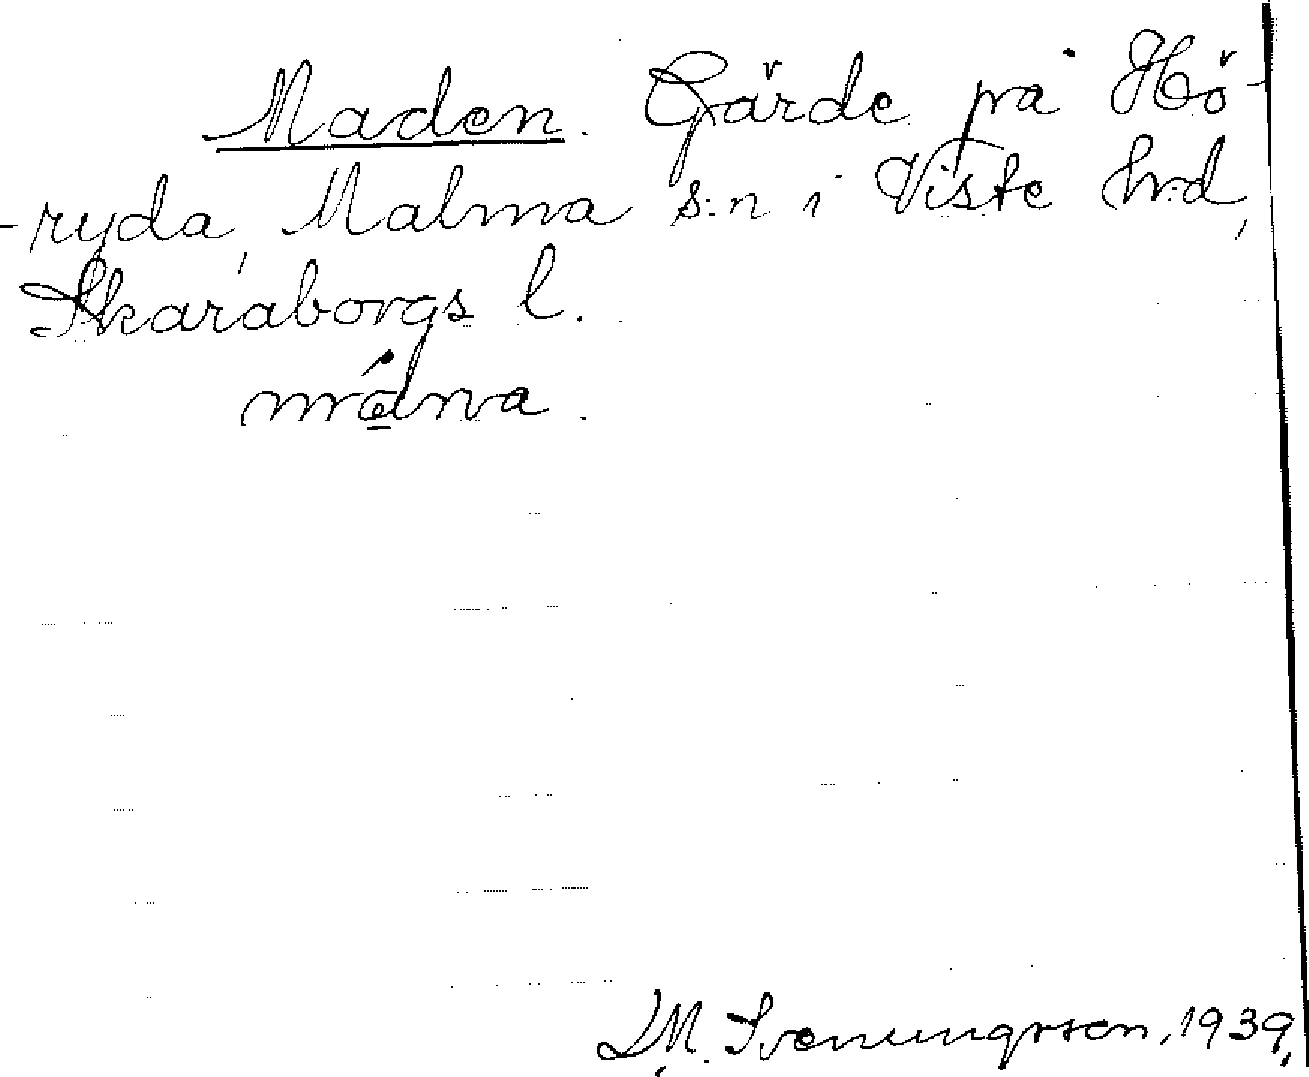 Maden. Gärde på Hö-
-ryda, Malma s:n i Viste hrd,
Skaraborgs l.
DM. Svenungsson, 1939,